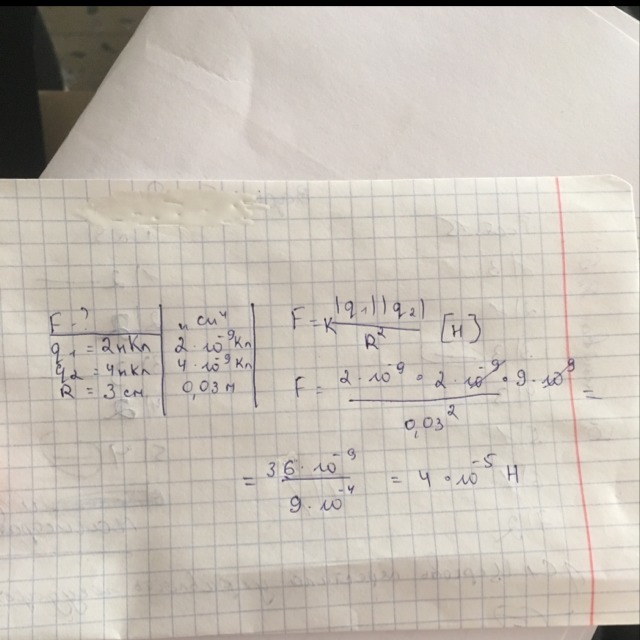 F - ?
q₁ = 2нКл
q₂ = 4нкл
R = 3 см
"СИ"
2 · 10⁻⁹ Кл
4 · 10⁻⁹ Кл
0,03 м
F = K |q₁| |q₂| / R² [H]
F = 2 · 10⁻⁹ · 2 · 10⁻⁹ · 9 · 10⁹ / 0,03² =
= 36 · 10⁻⁹ / 9 · 10⁻⁴ = 4 · 10⁻⁵ H